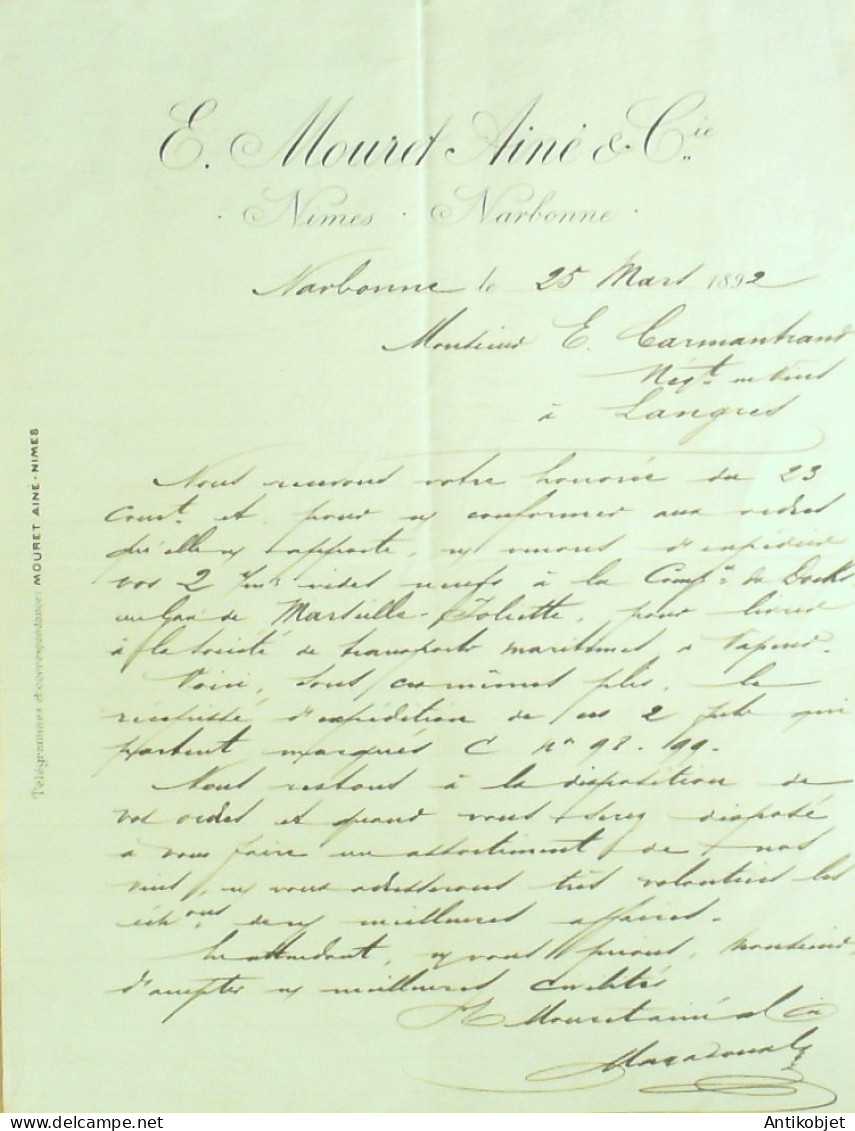 E. Mouret Ainé & Cie
Nimes · Narbonne
Narbonne le 25 Mars 1892
Monsieur E. Carmantrand
Négt. en Vins
à Langres
Nous recevons votre honorée du 23
Court. et pour n/ conformer aux ordres
qu'elle n/ apporte, n/ venons d'expédier
vos 2 vides neufs à la Compie. des Docks
en Gare de Marseille-Joliette, pour livrer
à la Société de transports maritimes à Vapeur.
Voici, sous ce même pli, le
récépissé d'expédition de ces 2 futs qui
partent marqués C no 98-199.
Nous restons à la disposition de
vos ordres et quand vous serez disposé
à vous faire un assortiment de nos
vins, n/ vous adresserons très volontiers les
échons. de n/ meilleures affaires.
En attendant, n/ vous prions, Monsieur,
d'accepter n/ meilleures Civilités
Mouret ainé & Cie
Télégrammes et correspondance: MOURET AINÉ - NIMES
delcampe.net
Antikobjet